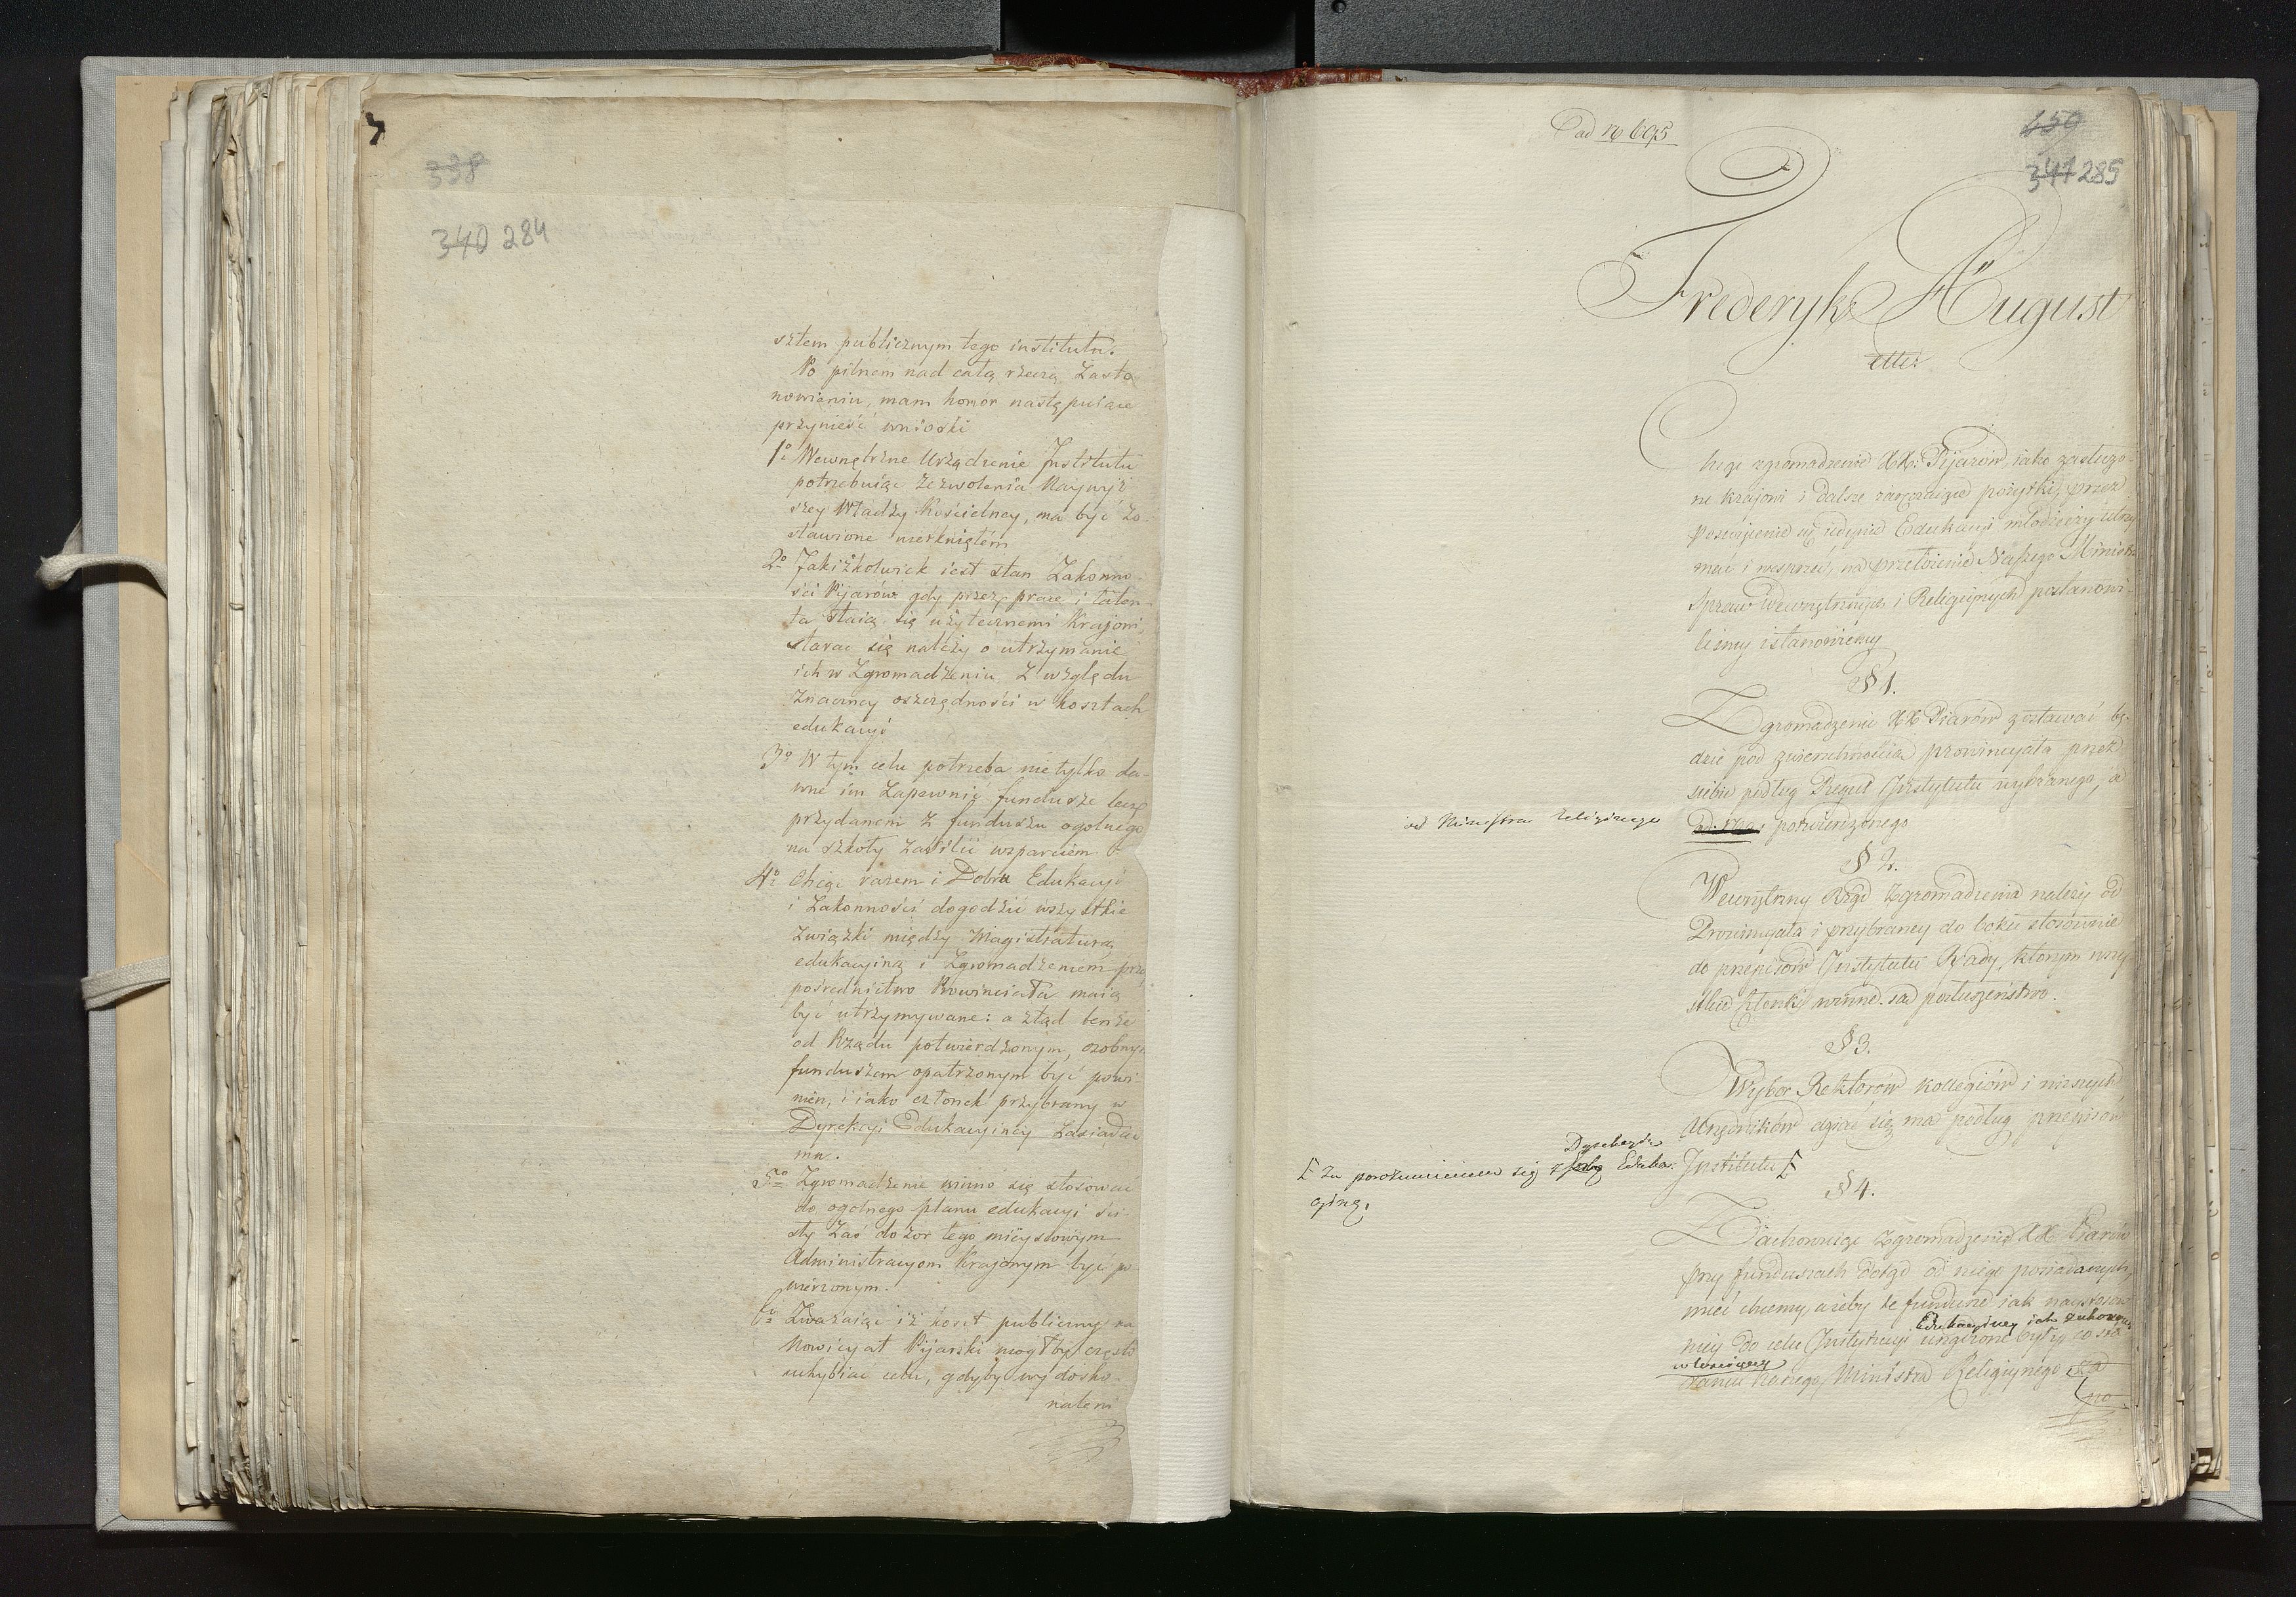 338
340 284
sztem publicznym tego institutu.
Po pilnem nad całą rzeczą zasta
nowieniu, mam honor następuiące
przynieść wnioski
1º Wewnętrzne Urządzenie Institutu
potrzebuiąc zezwolenia Naywyż
szey Władzy Kościelney, ma być zo-
stawione nietkniętém
2º Jakiżkolwiek iest stan Zakonno-
ści Pijarów gdy przez prace i talen-
ta staią się użytecznemi Krajowi,
starać się należy o utrzymanie
ich w Zgromadzeniu z względu
znaczney oszczędności w kosztach
edukacyi
3º W tym celu potrzeba nie tylko da-
wne im zapewnić fundusze lecz
przydaném z funduszu ogolnego
na szkoły zasilić wsparciem
4º Chcąc razem i Dobru Edukacyi
i Zakonności dogodzić wszystkie
związki między Magistraturą
edukacyiną i Zgromadzeniem prze
pośrednictwo Prowinciała maią
być utrzymywane: a ztąd tenże
od Rządu potwierdzonym, osobnym
funduszem opatrzonym być powi-
nien, i iako członek przybrany w
Dyrekcyi Edukacyiney zasiadać
ma.
5º Zgromadzenie winno się stosować
do ogolnego planu edukacyi ści-
sły zaś dozor tego mieyscowym
Administracyom Krajowym być po
wierzonym.
6º Zważaiąc iż koszt publiczny na
Nowicyat Pijarski mogłby często
uchybiać celu, gdyby wydosko-
naleni
ad No 695
650
347 285
Fryderyk August
etc:
Chcąc zgromadzenie XX: Pijarów, iako zasłużo-
ne krajowi i dalsze pożytki przez
poświęcenie się iedynie Edukacyi młodzieży utrzy
mać i wesprzeć, na przełożenie Naszego Ministra
Spraw Wewnętrznych i Religijnych postanowi-
liśmy i stanowiemy
§ 1.
Zgromadzenie XX Piarów zostawać bę-
dzie pod zwierzchnością prowincyała przez
siebie podług Reguł Instytutu wybranego, a
od Ministra religijnego
potwierdzonego
§ 2.
Wewnętrzny Rząd Zgromadzenia należy od
Prowincyała i przybraney do boku stosownie
do przepisów Instytutu Rady, ktorym wszy
stkie członki winne są posłuszeństwo.
§ 3.
Wybor Rektorów kollegiów i niższych
Urzędników dziać się ma podług przepisów
Institutu
Dyrekcyią
za porozumieniem się z Eduka-
cyiną.
§ 4.
Zachowuiąc zgromadzenie XX Piarów
przy funduszach dotąd od niego posiadanych,
mieć chcemy, ażeby te fundusze iak naystosow
Edukacyiney iak zakonney
niey do celu Instytucyi urządzone były co sta
właściwey
raniu Naszego Ministra Religijnego